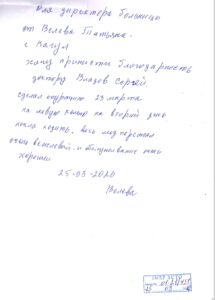 Для директора больницы
от Велева Татьяна.
г Кагул
хочу принисти благодарность
доктор Владов Сергей
сделал операцию 23 марта
на левую на второй день
пошла ходить, весь мед персонал
очень вежливой и обслуживание очень
хорошии
25-03-2020
Велева